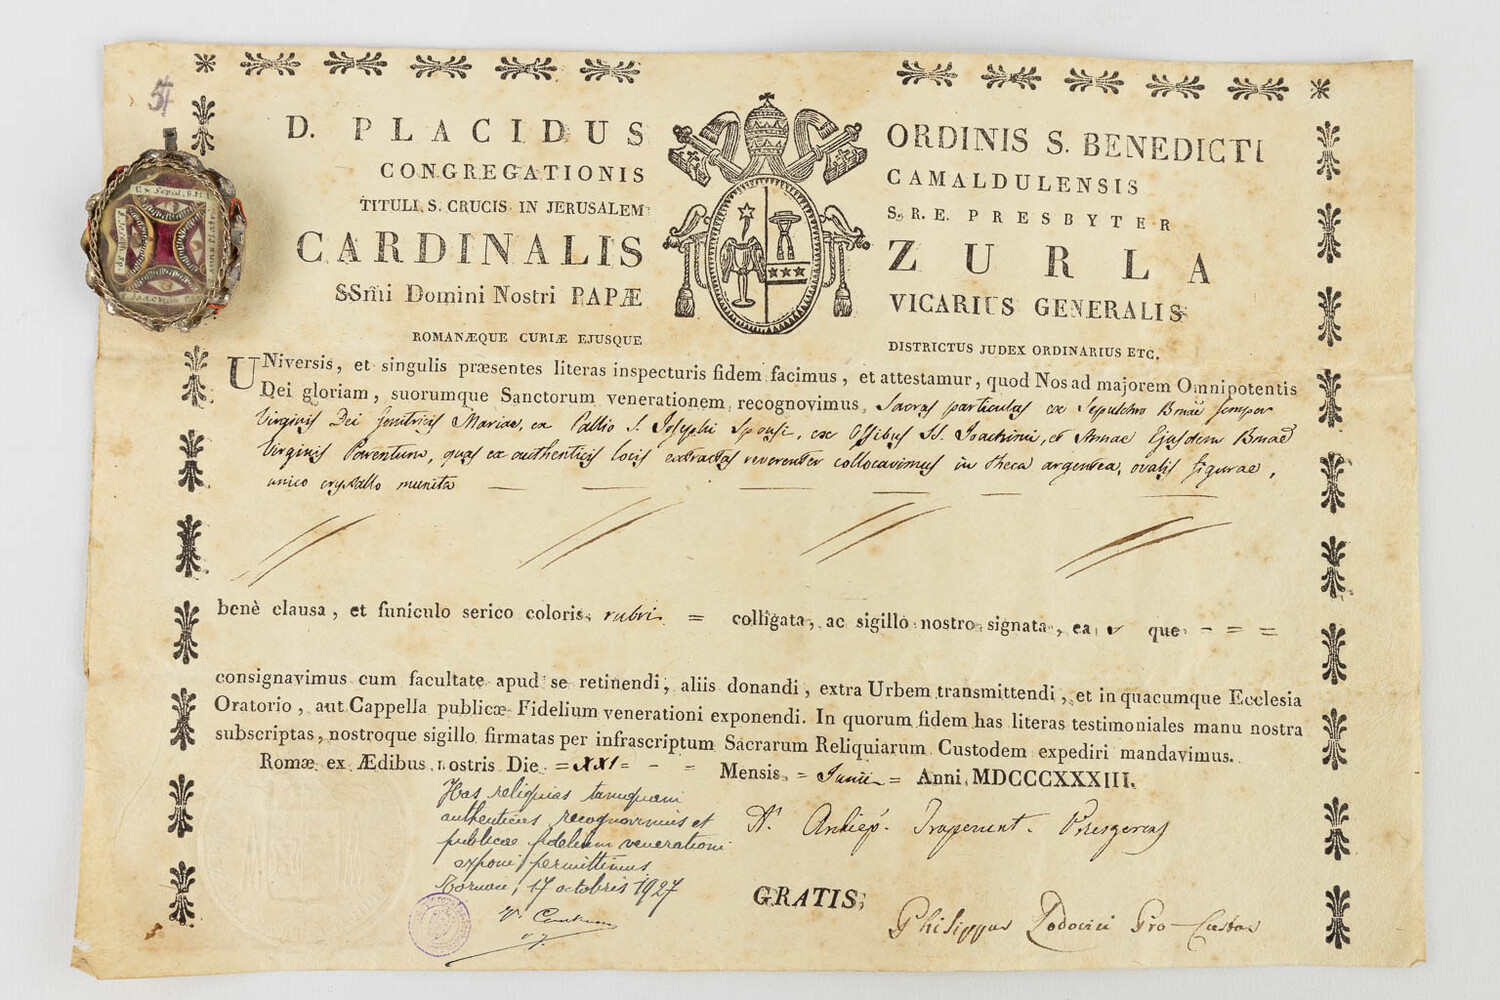 54
D. PLACIDUS ORDINIS S. BENEDICTI
CONGREGATIONIS CAMALDULENSIS
TITULI S. CRUCIS IN JERUSALEM S. R. E. PRESBYTER
CARDINALIS ZURLA
SSmi Domini Nostri PAPÆ VICARIUS GENERALIS
ROMANÆQUE CURIÆ EJUSQUE DISTRICTUS JUDEX ORDINARIUS ETC.
UNiversis, et singulis præsentes literas inspecturis fidem facimus, et attestamur, quod Nos ad majorem Omnipotentis
Dei gloriam, suorumque Sanctorum venerationem recognovimus Sacras particulas ex Sepulchro Bmae semper
Virginis Dei Genitricis Mariae, ex Pallio S. Josephi Sponsi, ex Ossibus SS. Joachimi, et Annae Ejusdem Bmae
Virginis Parentum, quas ex authenticis locis extractas reverenter collocavimus in theca argentea, ovalis figurae,
unico crystallo munita
benè clausa, et funiculo serico coloris rubri = colligata, ac sigillo nostro signata, ea que - = =
consignavimus cum facultate apud se retinendi, aliis donandi, extra Urbem transmittendi, et in quacumque Ecclesia
Oratorio, aut Cappella publicæ Fidelium venerationi exponendi. In quorum fidem has literas testimoniales manu nostra
subscriptas, nostroque sigillo firmatas per infrascriptum Sacrarum Reliquiarum Custodem expediri mandavimus.
Romæ ex Ædibus nostris Die = XXI = - = Mensis = Junii = Anni MDCCCXXXIII.
Has reliquias tamquam
authenticas recognovimus et
publicae fidelium venerationi
exponi permittimus
17 octobris 1927
GRATIS
Philippus Pro-Custos